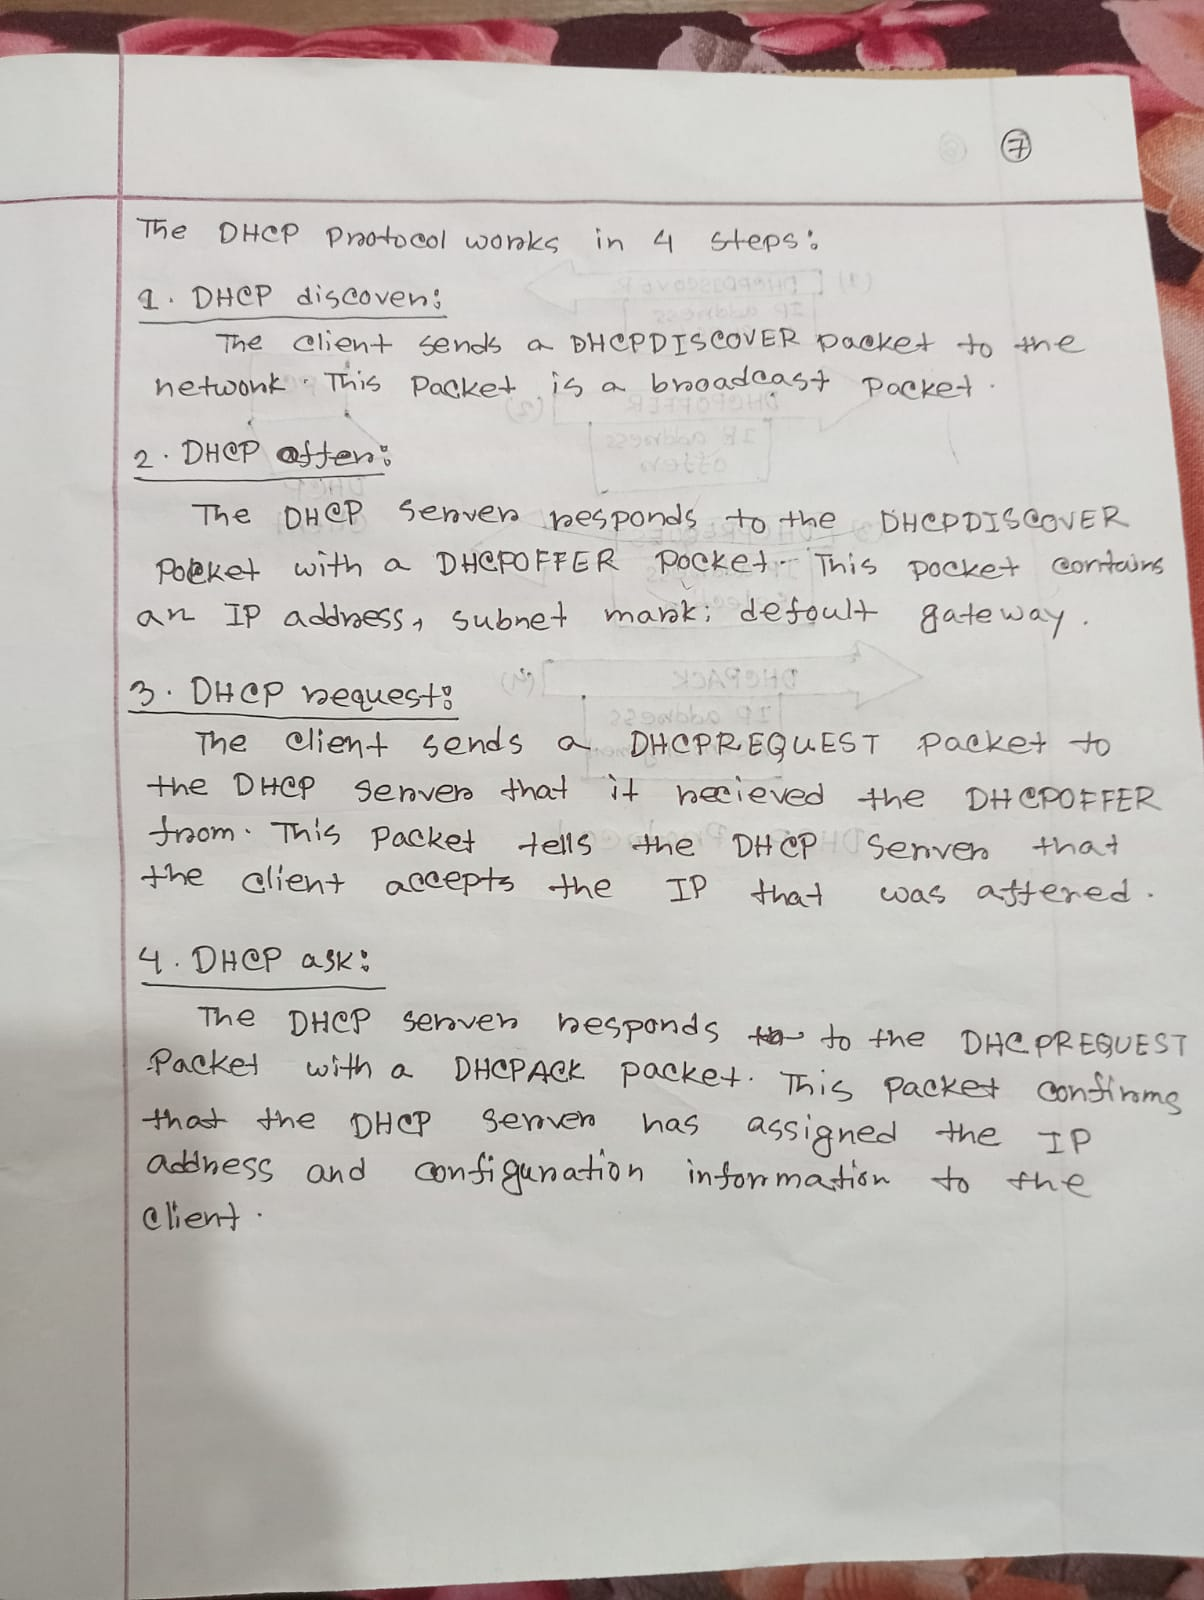 7
The DHCP Protocol works in 4 steps:
1. DHCP discover:
The client sends a DHCPDISCOVER packet to the
network. This Packet is a broadcast Packet.
2. DHCP offer:
The DHCP Server responds to the DHCPDISCOVER
Pocket with a DHCPOFFER Pocket. This pocket contains
an IP address, subnet mark; defoult gateway.
3. DHCP request:
The client sends a DHCPREQUEST Packet to
the DHCP server that it recieved the DHCPOFFER
from. This Packet tells the DHCP Server that
the client accepts the IP that was affered.
4. DHCP ask:
The DHCP server responds to the DHCPREQUEST
Packet with a DHCPACK packet. This Packet confirms
that the DHCP server has assigned the IP
address and configuration information to the
client.